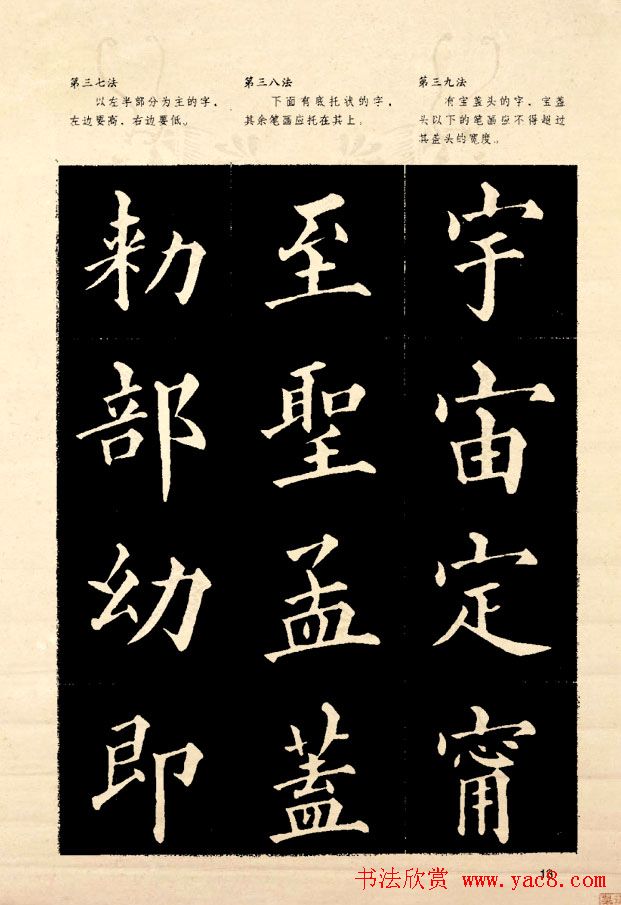 第三七法
以左半部分为主的字，
左边要高、右边要低。
第三八法
下面有底托状的字，
其余笔画应托在其上。
第三九法
有宝盖头的字，宝盖
头以下的笔画应不得超过
其盖头的宽度。
宇
宙
定
甯
至
聖
孟
蓋
勑
部
幼
即
书法欣赏 www.yac8.com